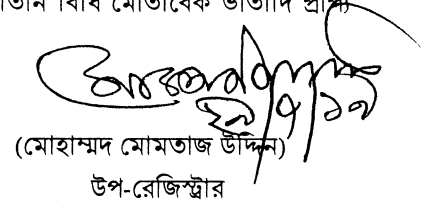 তিনি বিধি মোতাবেক ভাতাদি প্রাপ্য
(মোহাম্মদ মোমতাজ উদ্দিন)
উপ-রেজিস্ট্রার